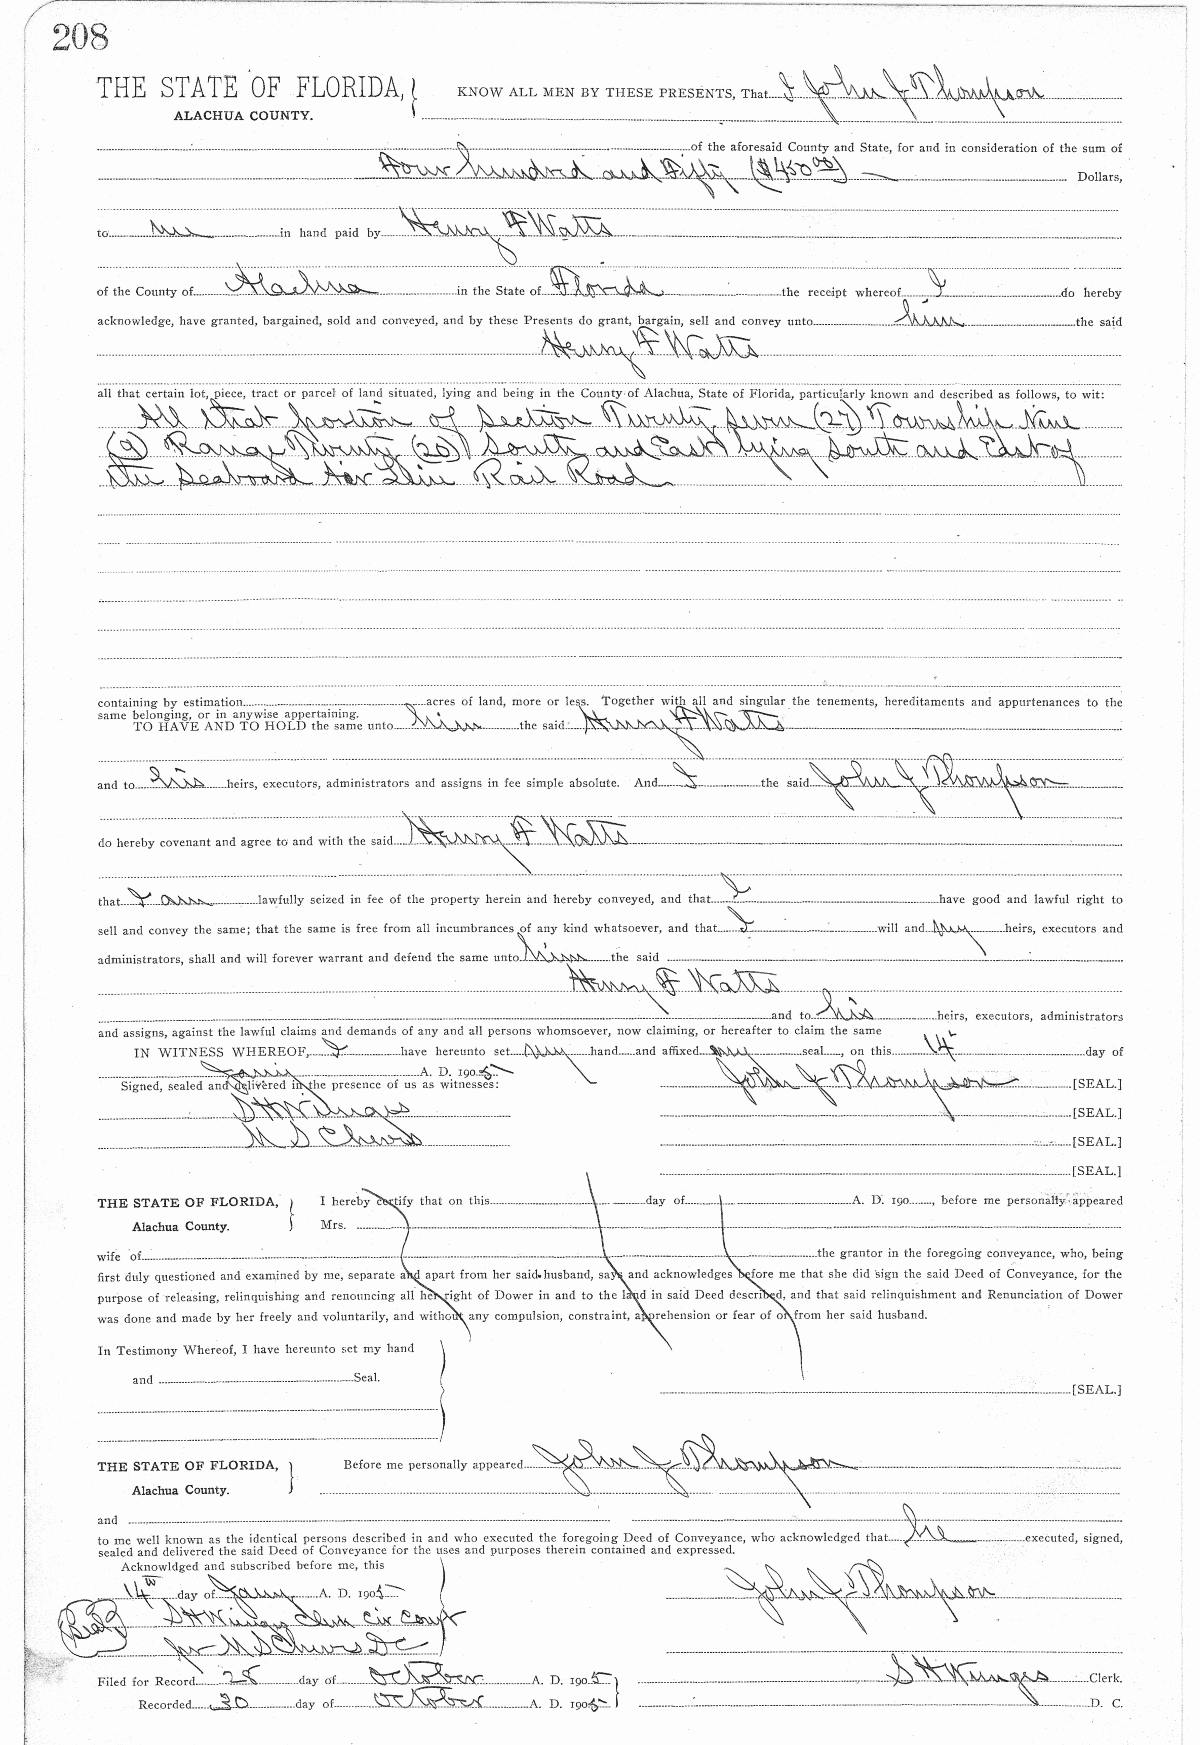 208
THE STATE OF FLORIDA,
ALACHUA COUNTY.
KNOW ALL MEN BY THESE PRESENTS, That I John J Thompson
of the aforesaid County and State, for and in consideration of the sum of
Four hundred and Fifty ($450 00) Dollars,
to me in hand paid by Henry F Watts
of the County of Alachua in the State of Florida the receipt whereof I do hereby
acknowledge, have granted, bargained, sold and conveyed, and by these Presents do grant, bargain, sell and convey unto him the said
Henry F Watts
all that certain lot, piece, tract or parcel of land situated, lying and being in the County of Alachua, State of Florida, particularly known and described as follows, to wit:
All that portion of Section Twenty seven (27) Township Nine
(9) Range Twenty (20) South and East lying South and East of
the Seaboard Air Line Rail Road
containing by estimation acres of land, more or less. Together with all and singular the tenements, hereditaments and appurtenances to the
same belonging, or in anywise appertaining.
TO HAVE AND TO HOLD the same unto him the said Henry F Watts
and to his heirs, executors, administrators and assigns in fee simple absolute. And I the said John J Thompson
do hereby covenant and agree to and with the said Henry F Watts
that I am lawfully seized in fee of the property herein and hereby conveyed, and that I have good and lawful right to
sell and convey the same; that the same is free from all incumbrances of any kind whatsoever, and that I will and my heirs, executors and
administrators, shall and will forever warrant and defend the same unto him the said
Henry F Watts
and to his heirs, executors, administrators
and assigns, against the lawful claims and demands of any and all persons whomsoever, now claiming, or hereafter to claim the same
IN WITNESS WHEREOF, I have hereunto set my hand and affixed my seal, on this 14 day of
Jany A. D. 1905
Signed, sealed and delivered in the presence of us as witnesses:
John J Thompson [SEAL.]
S H Wienges [SEAL.]
M S Cheves [SEAL.]
[SEAL.]
THE STATE OF FLORIDA,
Alachua County.
I hereby certify that on this day of A. D. 190, before me personally appeared
Mrs.
wife of the grantor in the foregoing conveyance, who, being
first duly questioned and examined by me, separate and apart from her said husband, says and acknowledges before me that she did sign the said Deed of Conveyance, for the
purpose of releasing, relinquishing and renouncing all her right of Dower in and to the land in said Deed described, and that said relinquishment and Renunciation of Dower
was done and made by her freely and voluntarily, and without any compulsion, constraint, apprehension or fear of or from her said husband.
In Testimony Whereof, I have hereunto set my hand
and Seal.
[SEAL.]
THE STATE OF FLORIDA,
Alachua County.
Before me personally appeared John J Thompson
and
to me well known as the identical persons described in and who executed the foregoing Deed of Conveyance, who acknowledged that he executed, signed,
sealed and delivered the said Deed of Conveyance for the uses and purposes therein contained and expressed.
Acknowldged and subscribed before me, this
14th day of Jany A. D. 1905
John J Thompson
(Seal) S H Wienges Clerk Cir Court
per M S Cheves D C
Filed for Record 28 day of October A. D. 1905
S H Wienges Clerk.
Recorded 30 day of October A. D. 1905
D. C.